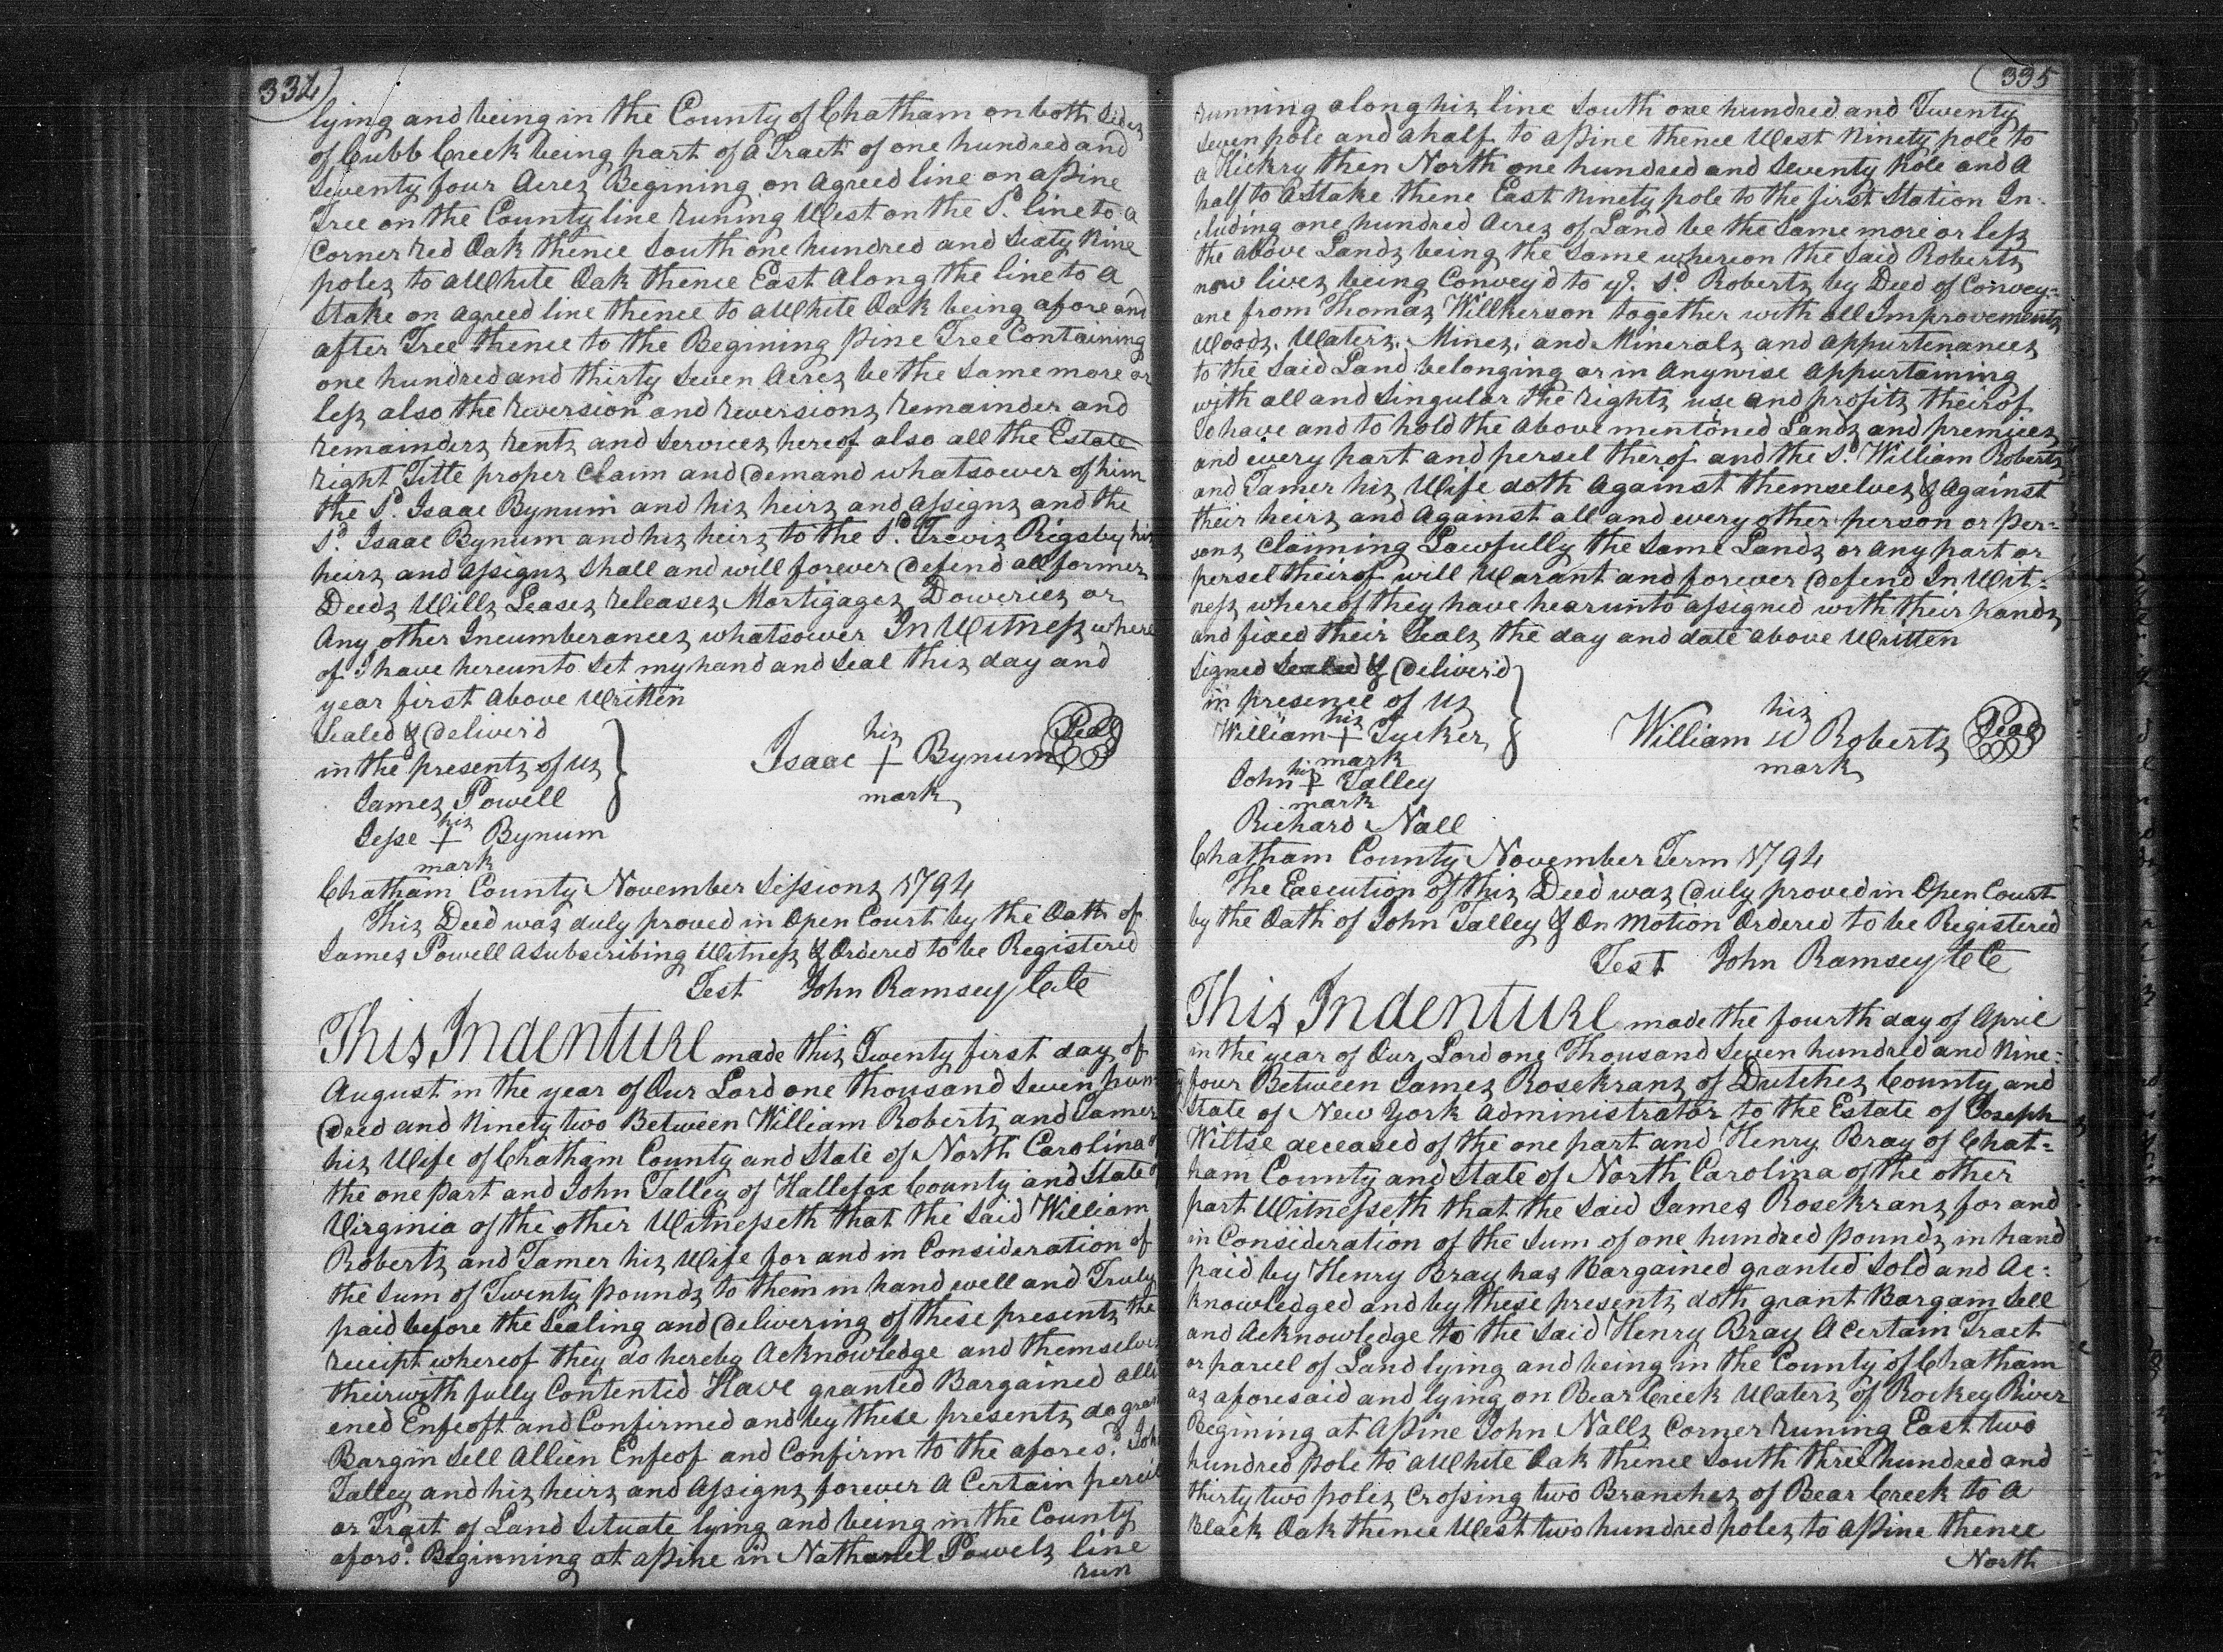 334
lying and being in the County of Chatham on both Sides
of Cubb Creek being part of a Tract of one hundred and
Seventy four Acres Begining on agreed line on a pine
Tree on the County line Runing West on the Sd. line to a
Corner Red Oak thence South one hundred and Sixty Nine
poles to a White Oak thence East along the line to a
Stake on agreed line thence to a White Oak being a fore and
after Tree thence to the Begining pine Tree Containing
one hundred and thirty Seven Acres be the Same more or
less also the Reversion and Reversions Remainder and
Remainders Rents and Services hereof also all the Estate
Right Title proper Claim and Demand whatsoever of him
the Sd. Isaac Bynum and his heirs and Assigns and the
Sd. Isaac Bynum and his heirs to the Sd. Trevis Rigsby his
heirs and Assigns Shall and will forever Defend all former
Deeds Wills Leases Releases Mortigages Doweries or
Any other Incumberances whatsoever In Witness where
of I have hereunto Set my hand and Seal this day and
year first above Written
Sealed & Deliver'd
in the presents of us
James Powell
Jesse his + mark Bynum
Isaac his + mark Bynum Seal
Chatham County November Sessions 1794
This Deed was duly proved in Open Court by the Oath of
James Powell a Subscribing Witness & Ordered to be Registered
Test John Ramsey CCC
This Indenture made this Twenty first day of
August in the year of Our Lord one thousand Seven hun
dred and Ninety two Between William Roberts and Tamer
his Wife of Chatham County and State of North Carolina of
the one part and John Talley of Hallefax County and State of
Virginia of the other Witnesseth that the Said William
Roberts and Tamer his Wife for and in Consideration of
the Sum of Twenty pounds to them in hand well and Truly
paid before the Sealing and Delivering of these presents the
receipt whereof they do hereby Acknowledge and themselves
theirwith fully Contented Have granted Bargained alli
ened Enfeoft and Confirmed and by these presents do grant
Bargin Sell Allien Enfeof and Confirm to the afores'd. John
Talley and his heirs and Assigns forever A Certain percil
or Tract of Land Situate lying and being in the County
afors'd. Beginning at a pine in Nathanel Powels line
run
335
running along his line South one hundred and Twenty
Seven pole and a half to a pine thence West Ninety pole to
a Hickry then North one hundred and Seventy pole and a
half to a Stake thene East Ninety pole to the first Station In-
cluding one hundred Acres of Land be the Same more or less
the above Lands being the Same whereon the Said Roberts
now lives being Convey'd to ye. Sd. Roberts by Deed of Convey=
ane from Thomas Willkerson together with all Improvements
Woods. Waters. Mines, and Minerals and appurtenances
to the Said Land belonging or in Anywise Appurtaining
with all and Singular the rights use and profits theirof
To have and to hold the Above mentioned Lands and premices
and every part and persel therof and the Sd. William Roberts
and Tamer his Wife doth Against themselves & Against
their heirs and Against all and every other person or per=
sons Claiming Lawfully the Same Lands or any part or
persel theirof will Warant and forever Defend In Wit=
ness whereof they have hearunto assigned with their hands
and fixed their Seals the day and date above Written
Signed Sealed & Deliver'd
in presence of us
William his + mark Tucker
John his + mark Talley
Richard Nall
William his W mark Roberts Seal
Chatham County November Term 1794
The Execution of this Deed was Duly proved in Open Court
by the Oath of John Talley & On Motion Ordered to be Registered
Test John Ramsey CCC
This Indenture made the fourth day of April
in the year of Our Lord one Thousand Seven hundred and Nine=
ty four Between James Rosekrans of Dutches County and
State of New York Administrator to the Estate of Joseph
Wiltse deceased of the one part and Henry Bray of Chat=
ham County and State of North Carolina of the other
part Witnesseth that the Said James Rosekrans for and
in Consideration of the Sum of one hundred pounds in hand
paid by Henry Bray has Bargained granted Sold and Ac=
knowledged and by these presents doth grant Bargain Sell
and Acknowledge to the Said Henry Bray A Certain Tract
or parcel of Land lying and being in the County of Chatham
as aforesaid and lying on Bear Creek Waters of Rockey River
Begining at a pine John Nalls Corner Runing East two
hundred pole to a White Oak thence South three hundred and
thirty two poles Crossing two Branches of Bear Creek to a
Black Oak thence West two hundred poles to a pine thence
North